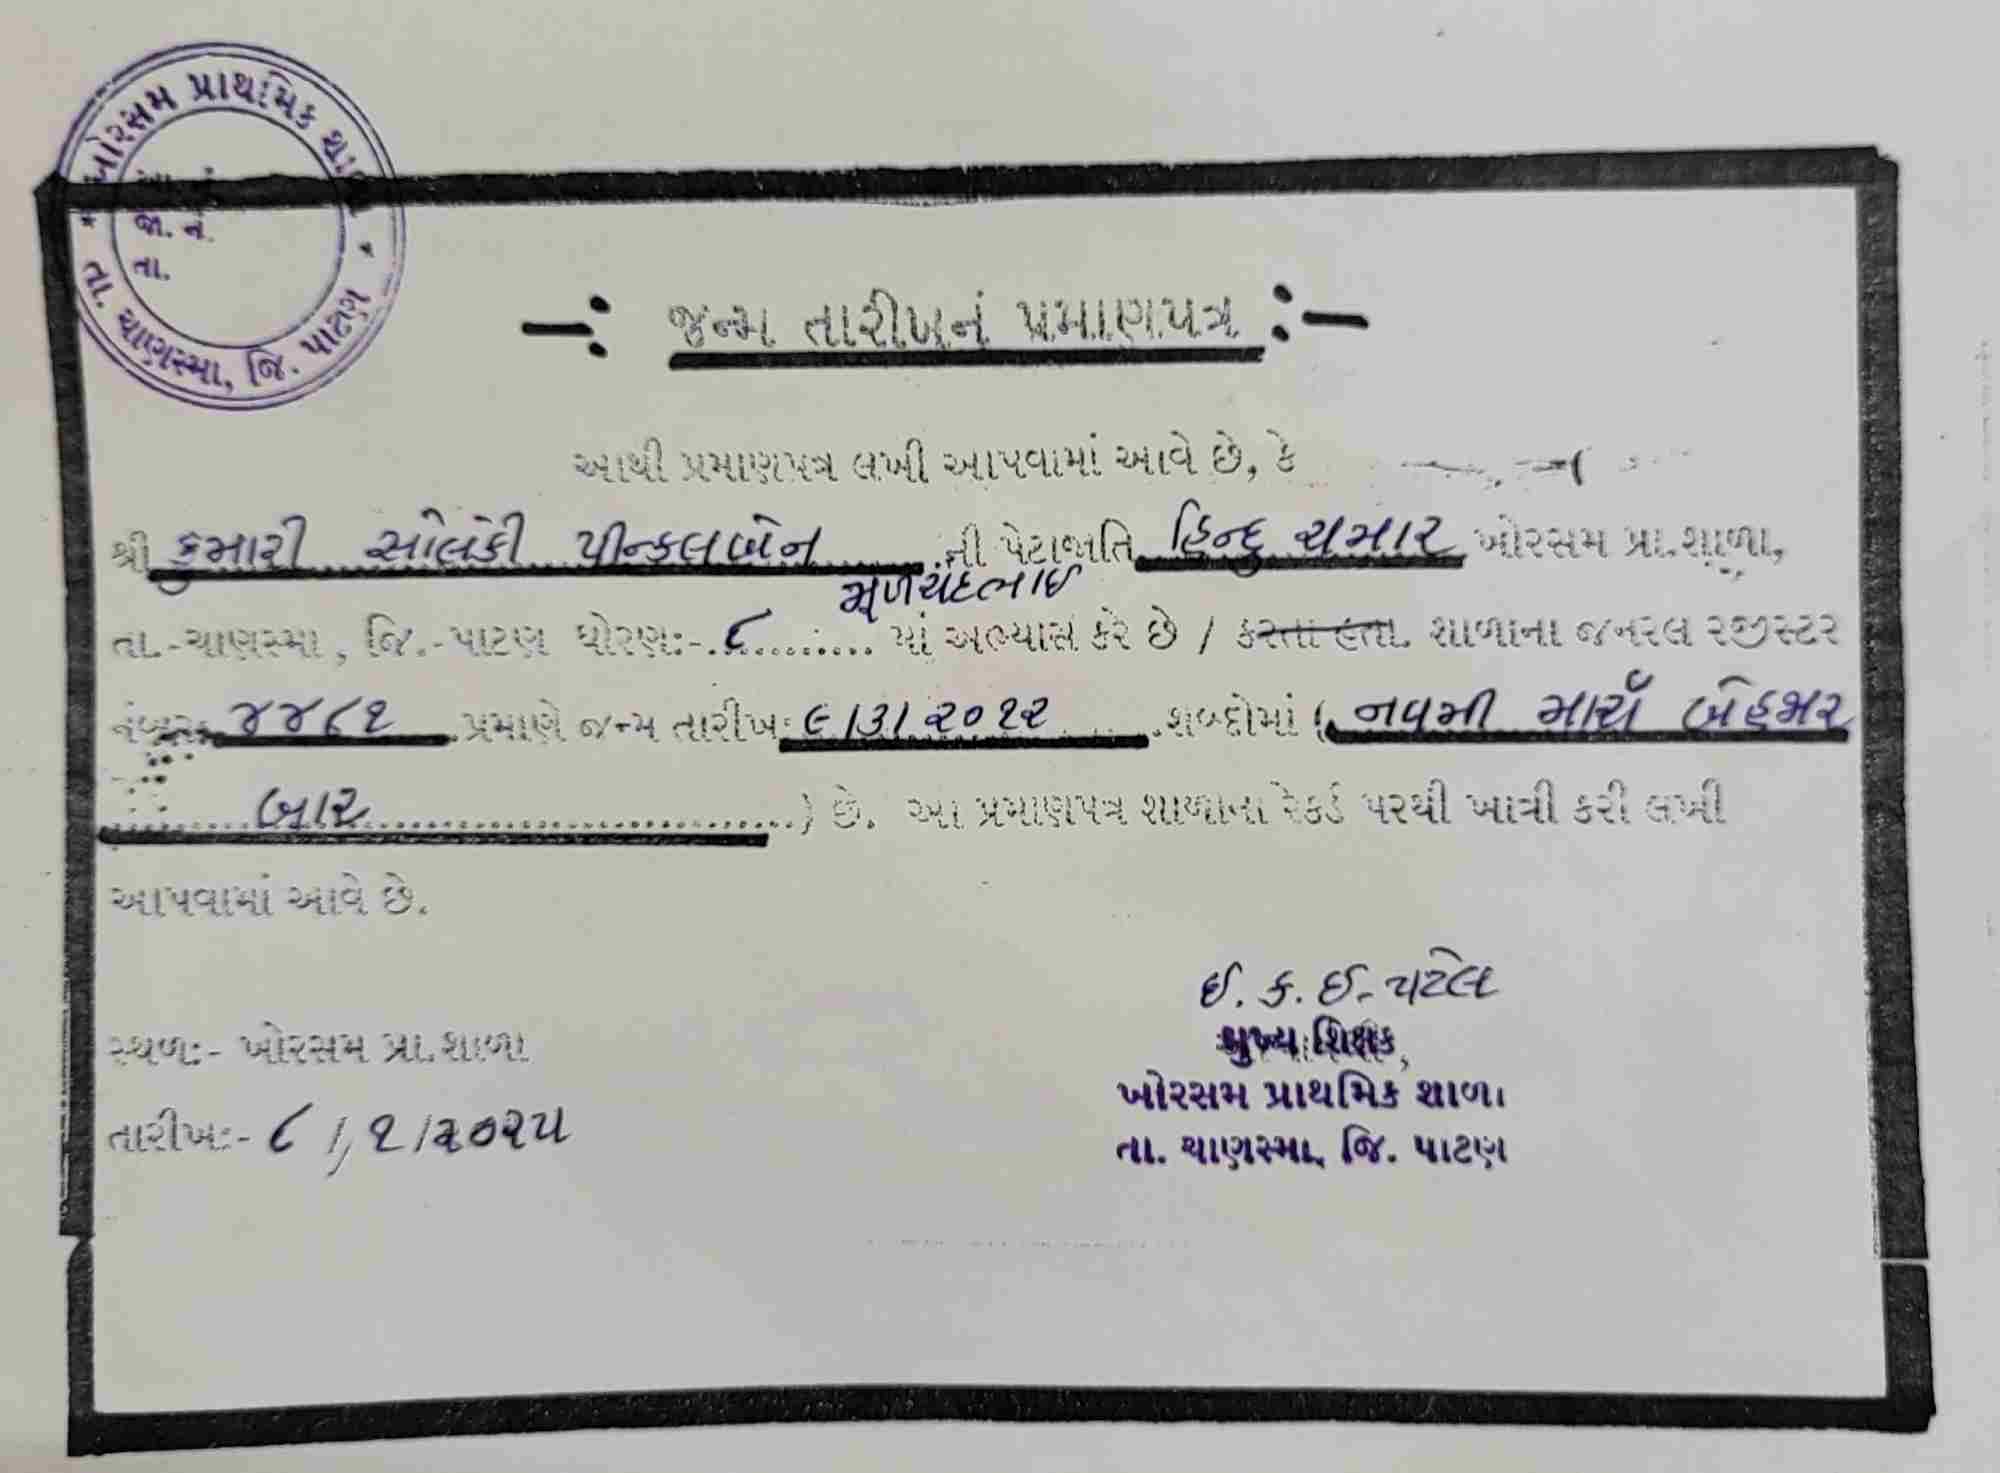 ખોરસમ પ્રાથમિક શાળા
જા. નં.
તા.
* તા. ચાણસ્મા, જિ. પાટણ *
-: જન્મ તારીખનું પ્રમાણપત્ર :-
આથી પ્રમાણપત્ર લખી આપવામાં આવે છે, કે
શ્રી કુમારી સોલંકી પીન્કલબેન ની પેટાજાતિ હિન્દુ ચમાર ખોરસમ પ્રા.શાળા,
મૂળચંદભાઇ
તા.-ચાણસ્મા, જિ.-પાટણ ધોરણ:- ૮ માં અભ્યાસ કરે છે / કરતા હતા. શાળાના જનરલ રજીસ્ટર
નંબર: ૪૪૮૧ પ્રમાણે જન્મ તારીખ: ૯/૩/૨૦૧૨ શબ્દોમાં ( નવમી માર્ચ બેહજાર
બાર ) છે. આ પ્રમાણપત્ર શાળાના રેકર્ડ પરથી ખાત્રી કરી લખી
આપવામાં આવે છે.
ઈ. ક. ઈ. પટેલ
મુખ્ય શિક્ષક,
સ્થળ:- ખોરસમ પ્રા.શાળા
ખોરસમ પ્રાથમિક શાળા
તારીખ:- ૮/૧/૨૦૨૫
તા. ચાણસ્મા, જિ. પાટણ